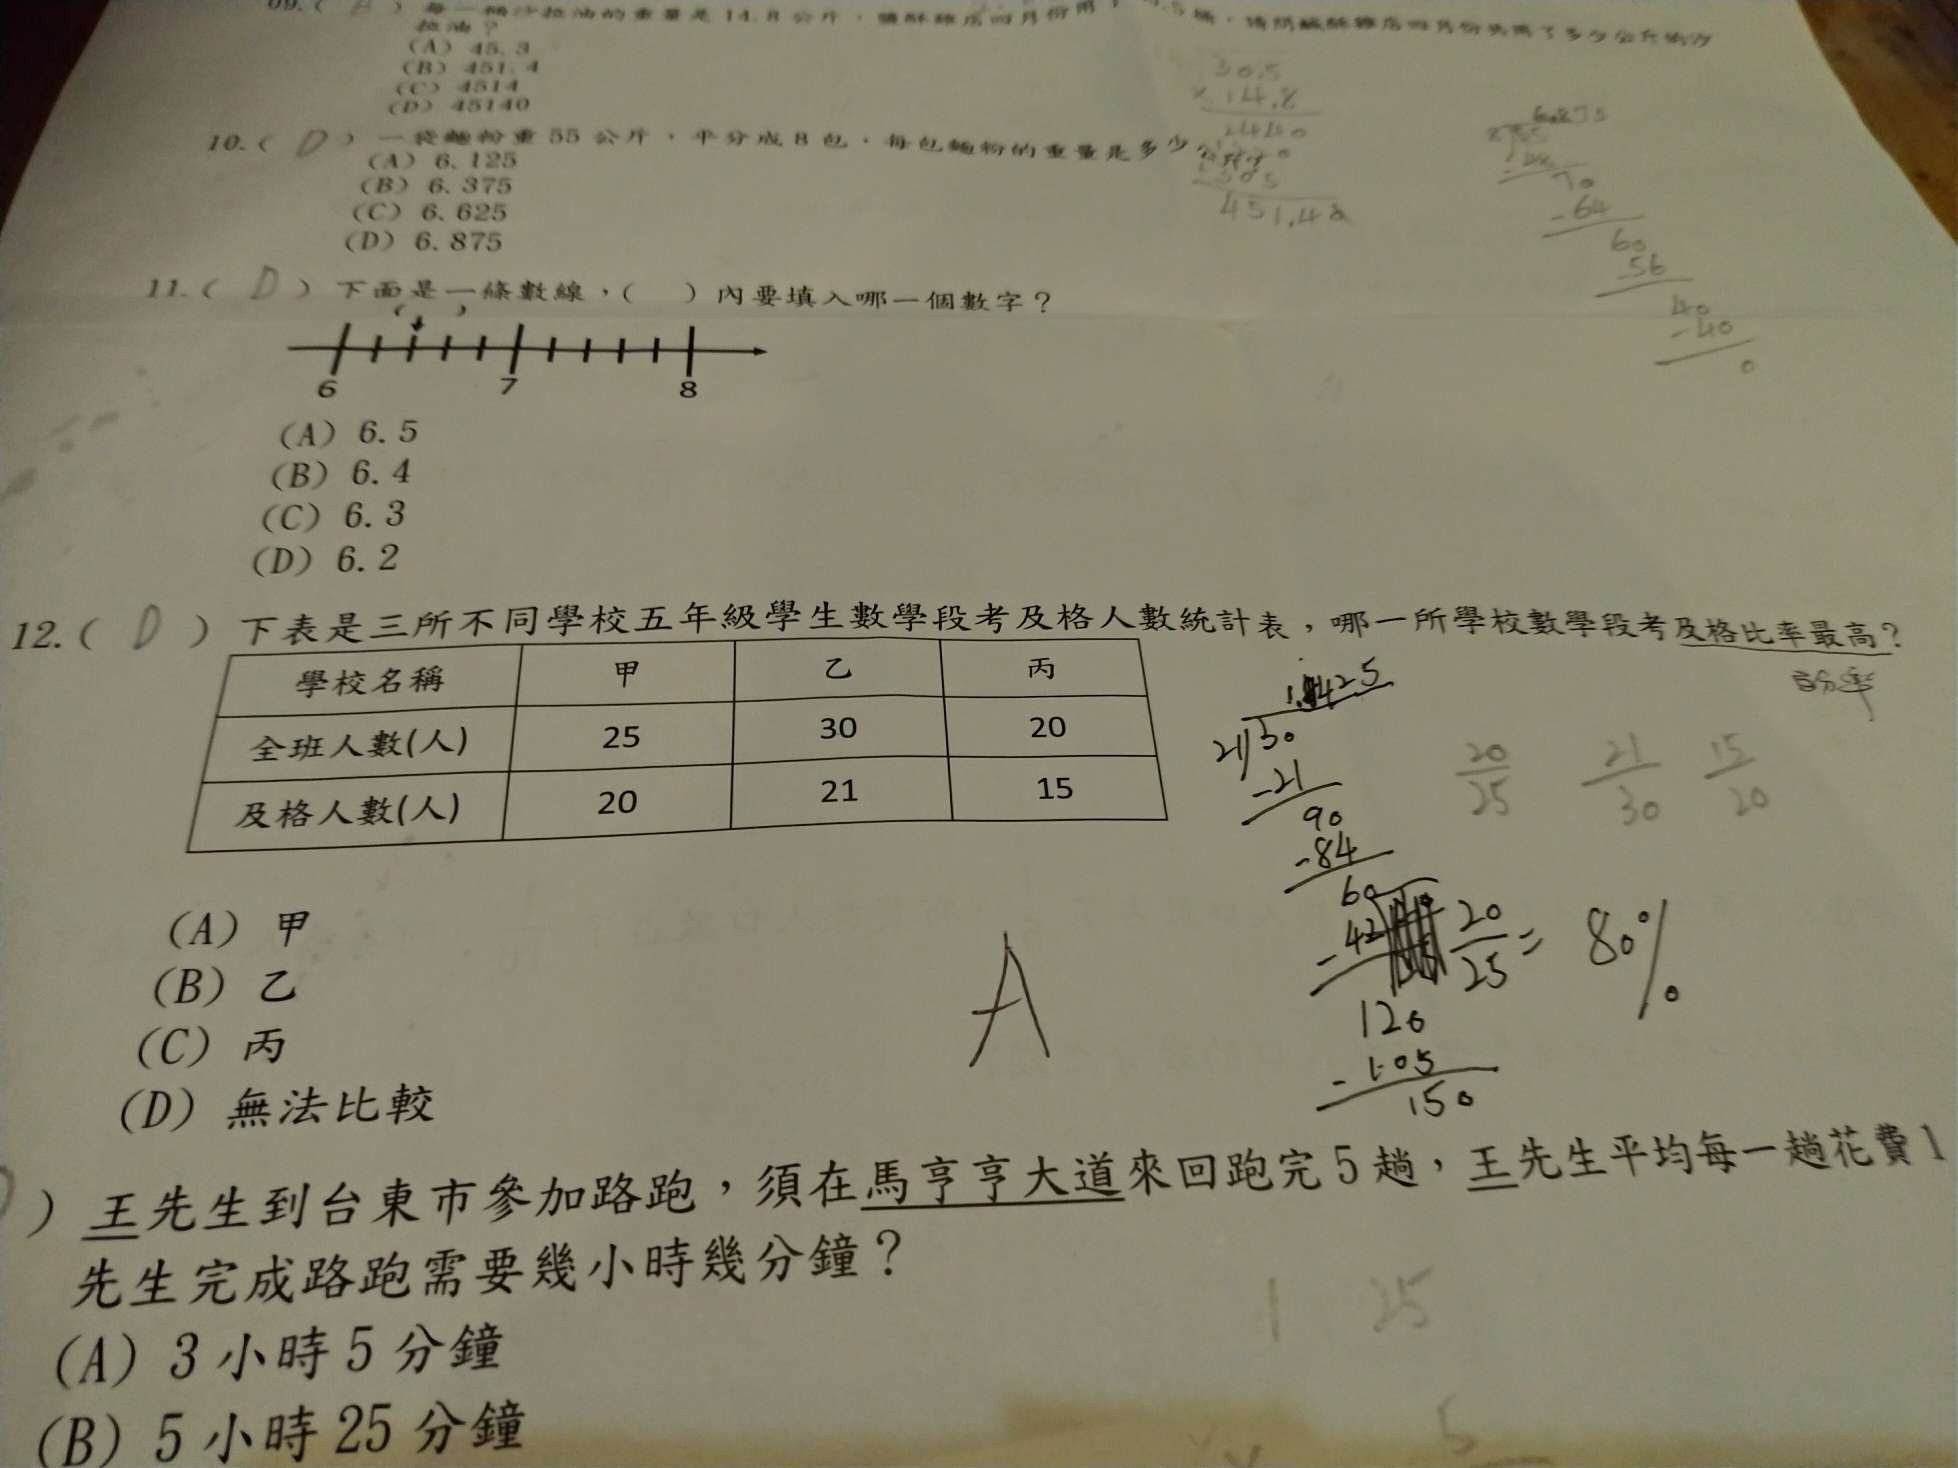 09.( ) 每一桶沙拉油的重量是 14.8 公斤，鹽酥雞店四月份用
拉油？
(A) 45.3
(B) 451.4
(C) 4514
(D) 45140
30.5
× 14.8
451.48
10.( D ) 一袋麵粉重 55 公斤，平分成 8 包，每包麵粉的重量是多少公斤？
(A) 6.125
(B) 6.375
(C) 6.625
(D) 6.875
6.875
- 64
60
56
40
- 40
0
11.( D ) 下面是一條數線，( ) 內要填入哪一個數字？
( )
6 7 8
(A) 6.5
(B) 6.4
(C) 6.3
(D) 6.2
12.( D ) 下表是三所不同學校五年級學生數學段考及格人數統計表，哪一所學校數學段考及格比率最高？
百分率
學校名稱 甲 乙 丙
全班人數(人) 25 30 20
及格人數(人) 20 21 15
21)30
-21
90
-84
60
-42
120
-105
150
20/25 21/30 15/20
20/25 = 80%
A
(A) 甲
(B) 乙
(C) 丙
(D) 無法比較
) 王先生到台東市參加路跑，須在馬亨亨大道來回跑完 5 趟，王先生平均每一趟花費 1
先生完成路跑需要幾小時幾分鐘？
1 25
5
(A) 3 小時 5 分鐘
(B) 5 小時 25 分鐘